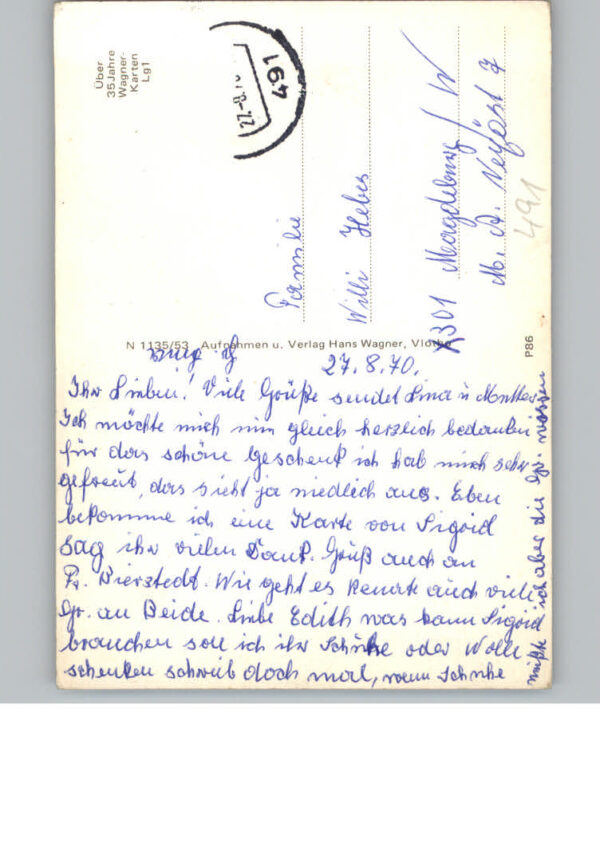 Über
35 Jahre
Wagner-
Karten
Lg1
491
Familie
Willi Hebes
X301 Magdeburg / W
M. A. Nexöst 7
491
N 1135/53 Aufnahmen u. Verlag Hans Wagner, Vlotho
P86
27.8.70.
Ihr Lieben! Viele Grüße sendet Lina u Mutter
Ich möchte mich nun gleich herzlich bedanken
für das schöne Geschenk ich hab mich sehr
gefreut, das sieht ja niedlich aus. Eben
bekomme ich eine Karte von Sigrid
sag ihr vielen Dank. Grüß auch an
Fr. Bierstedt. Wie geht es Renate auch viele
Gr. an Beide. Liebe Edith was kann Sigrid
brauchen soll ich ihr Schuhe oder Wolle
schenken schreib doch mal, wenn Schuhe
müßte ich aber die Gr. wissen